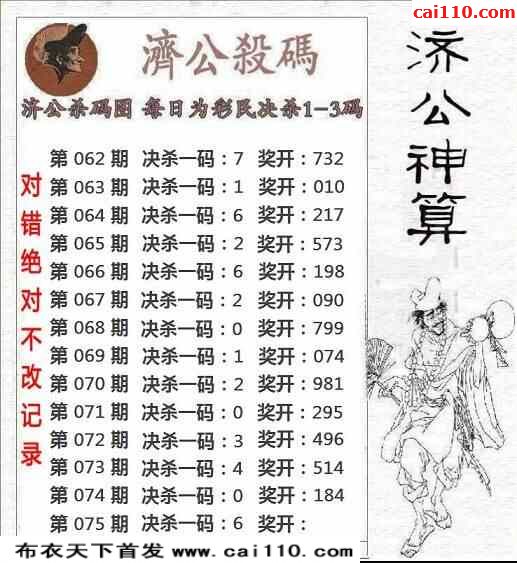 cai110.com
濟公殺碼
济公杀码图 每日为彩民决杀1-3码
第 062 期 决杀一码:7 奖开:732
第 063 期 决杀一码:1 奖开:010
第 064 期 决杀一码:6 奖开:217
第 065 期 决杀一码:2 奖开:573
第 066 期 决杀一码:6 奖开:198
第 067 期 决杀一码:2 奖开:090
第 068 期 决杀一码:0 奖开:799
第 069 期 决杀一码:1 奖开:074
第 070 期 决杀一码:2 奖开:981
第 071 期 决杀一码:0 奖开:295
第 072 期 决杀一码:3 奖开:496
第 073 期 决杀一码:4 奖开:514
第 074 期 决杀一码:0 奖开:184
第 075 期 决杀一码:6 奖开:
对错绝对不改记录
济公神算
布衣天下首发 www.cai110.com